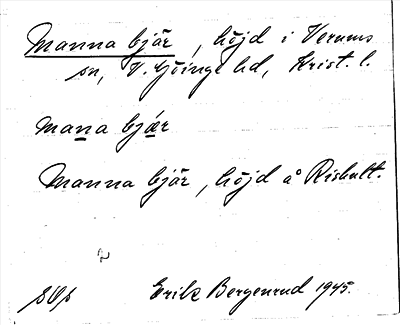 Manna bjär, höjd i Verums
sn, V. Göinge hd, Krist. l.
mana bjär
Manna bjär, höjd å Rishult.
Erik Bergenrud 1945.